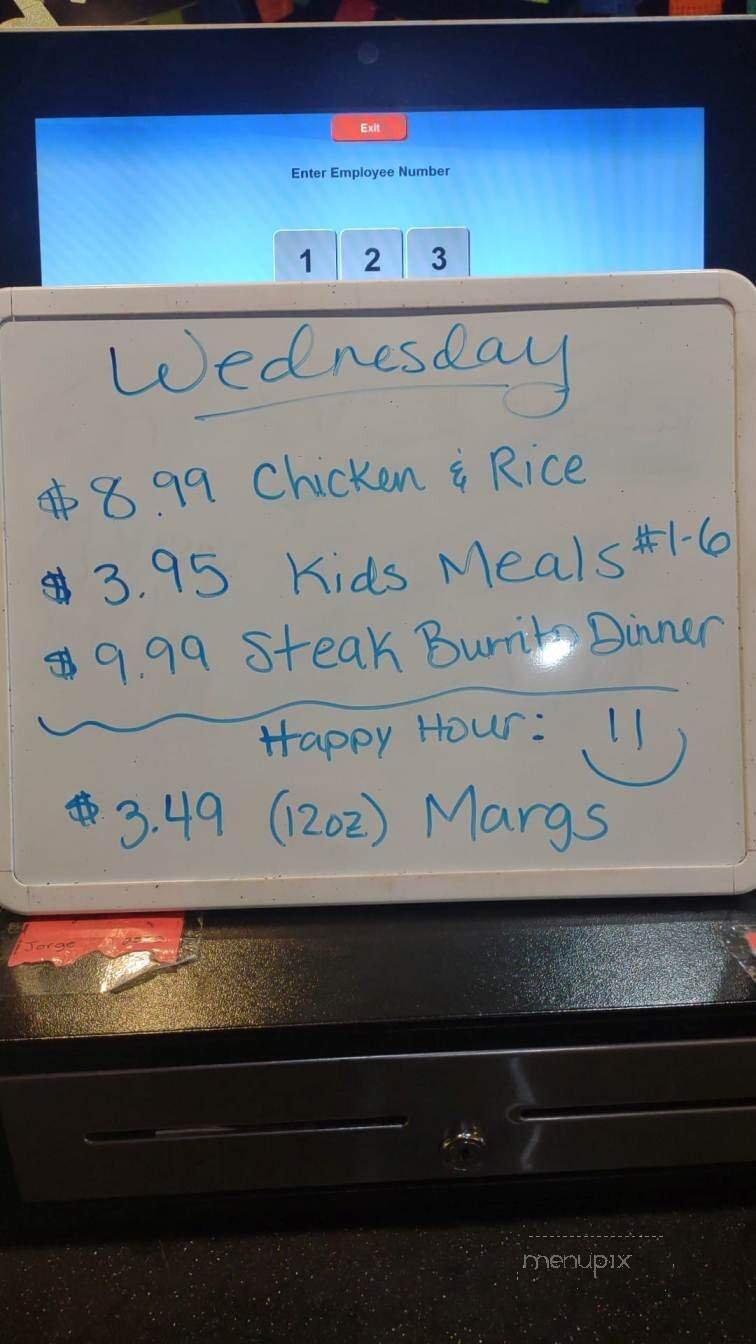 Exit
Enter Employee Number
1 2 3
Wednesday
$8.99 Chicken & Rice
$3.95 Kids Meals #1-6
$9.99 Steak Burrito Dinner
Happy Hour:
$3.49 (12oz) Margs
Jorge
menupix